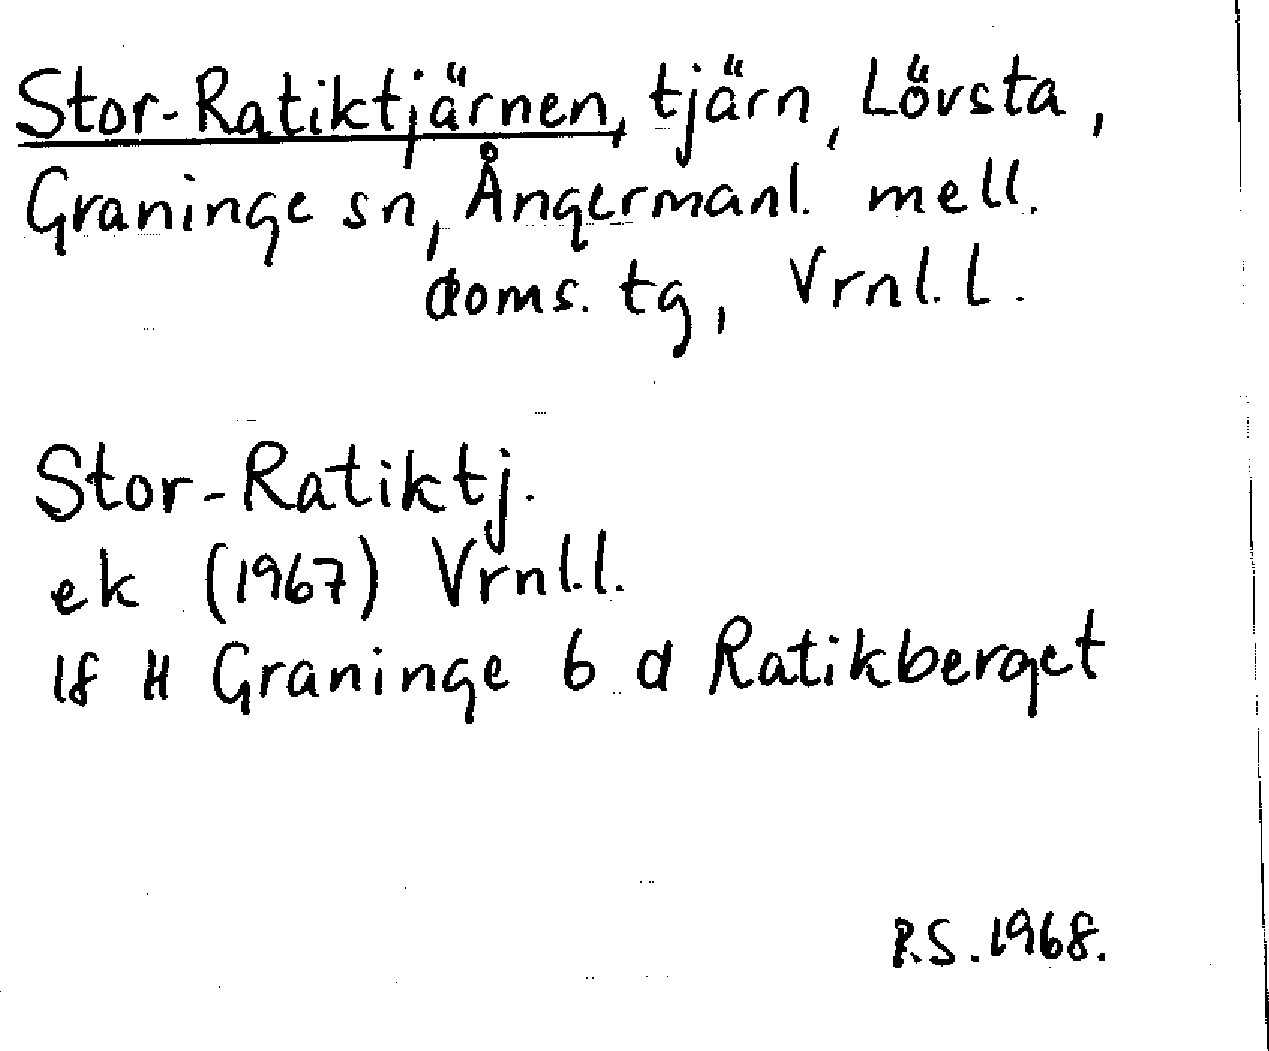 Stor-Ratiktjärnen, tjärn, Lövsta,
Graninge sn, Ångermanl. mell.
doms. tg, Vrnl. l.
Stor-Ratiktj.
ek (1967) Vrnl.l.
18 H Graninge 6 d Ratikberget
R.S. 1968.